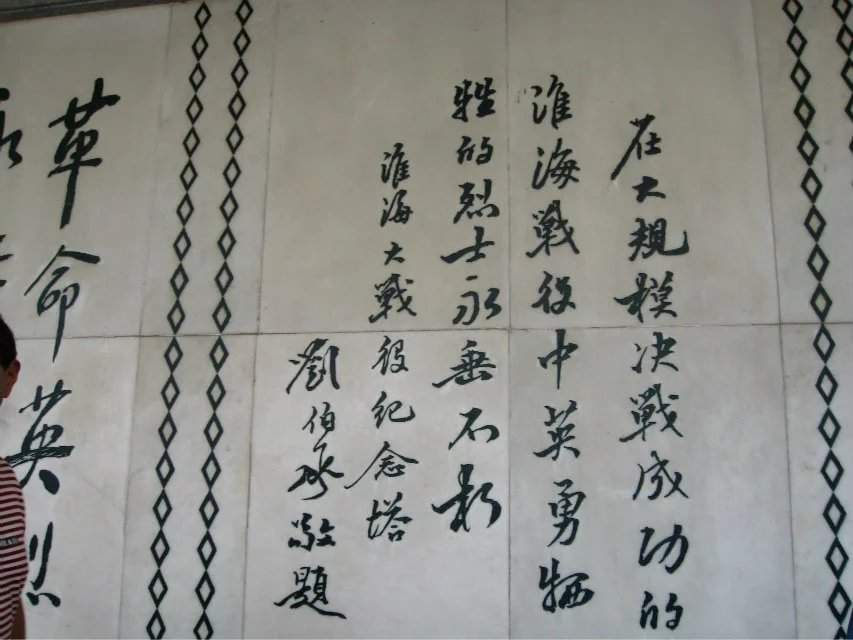 在大規模决戰成功的
淮海戰役中英勇牺
牲的烈士永垂不朽
淮海大戰役纪念塔
劉伯承敬題
革命英烈